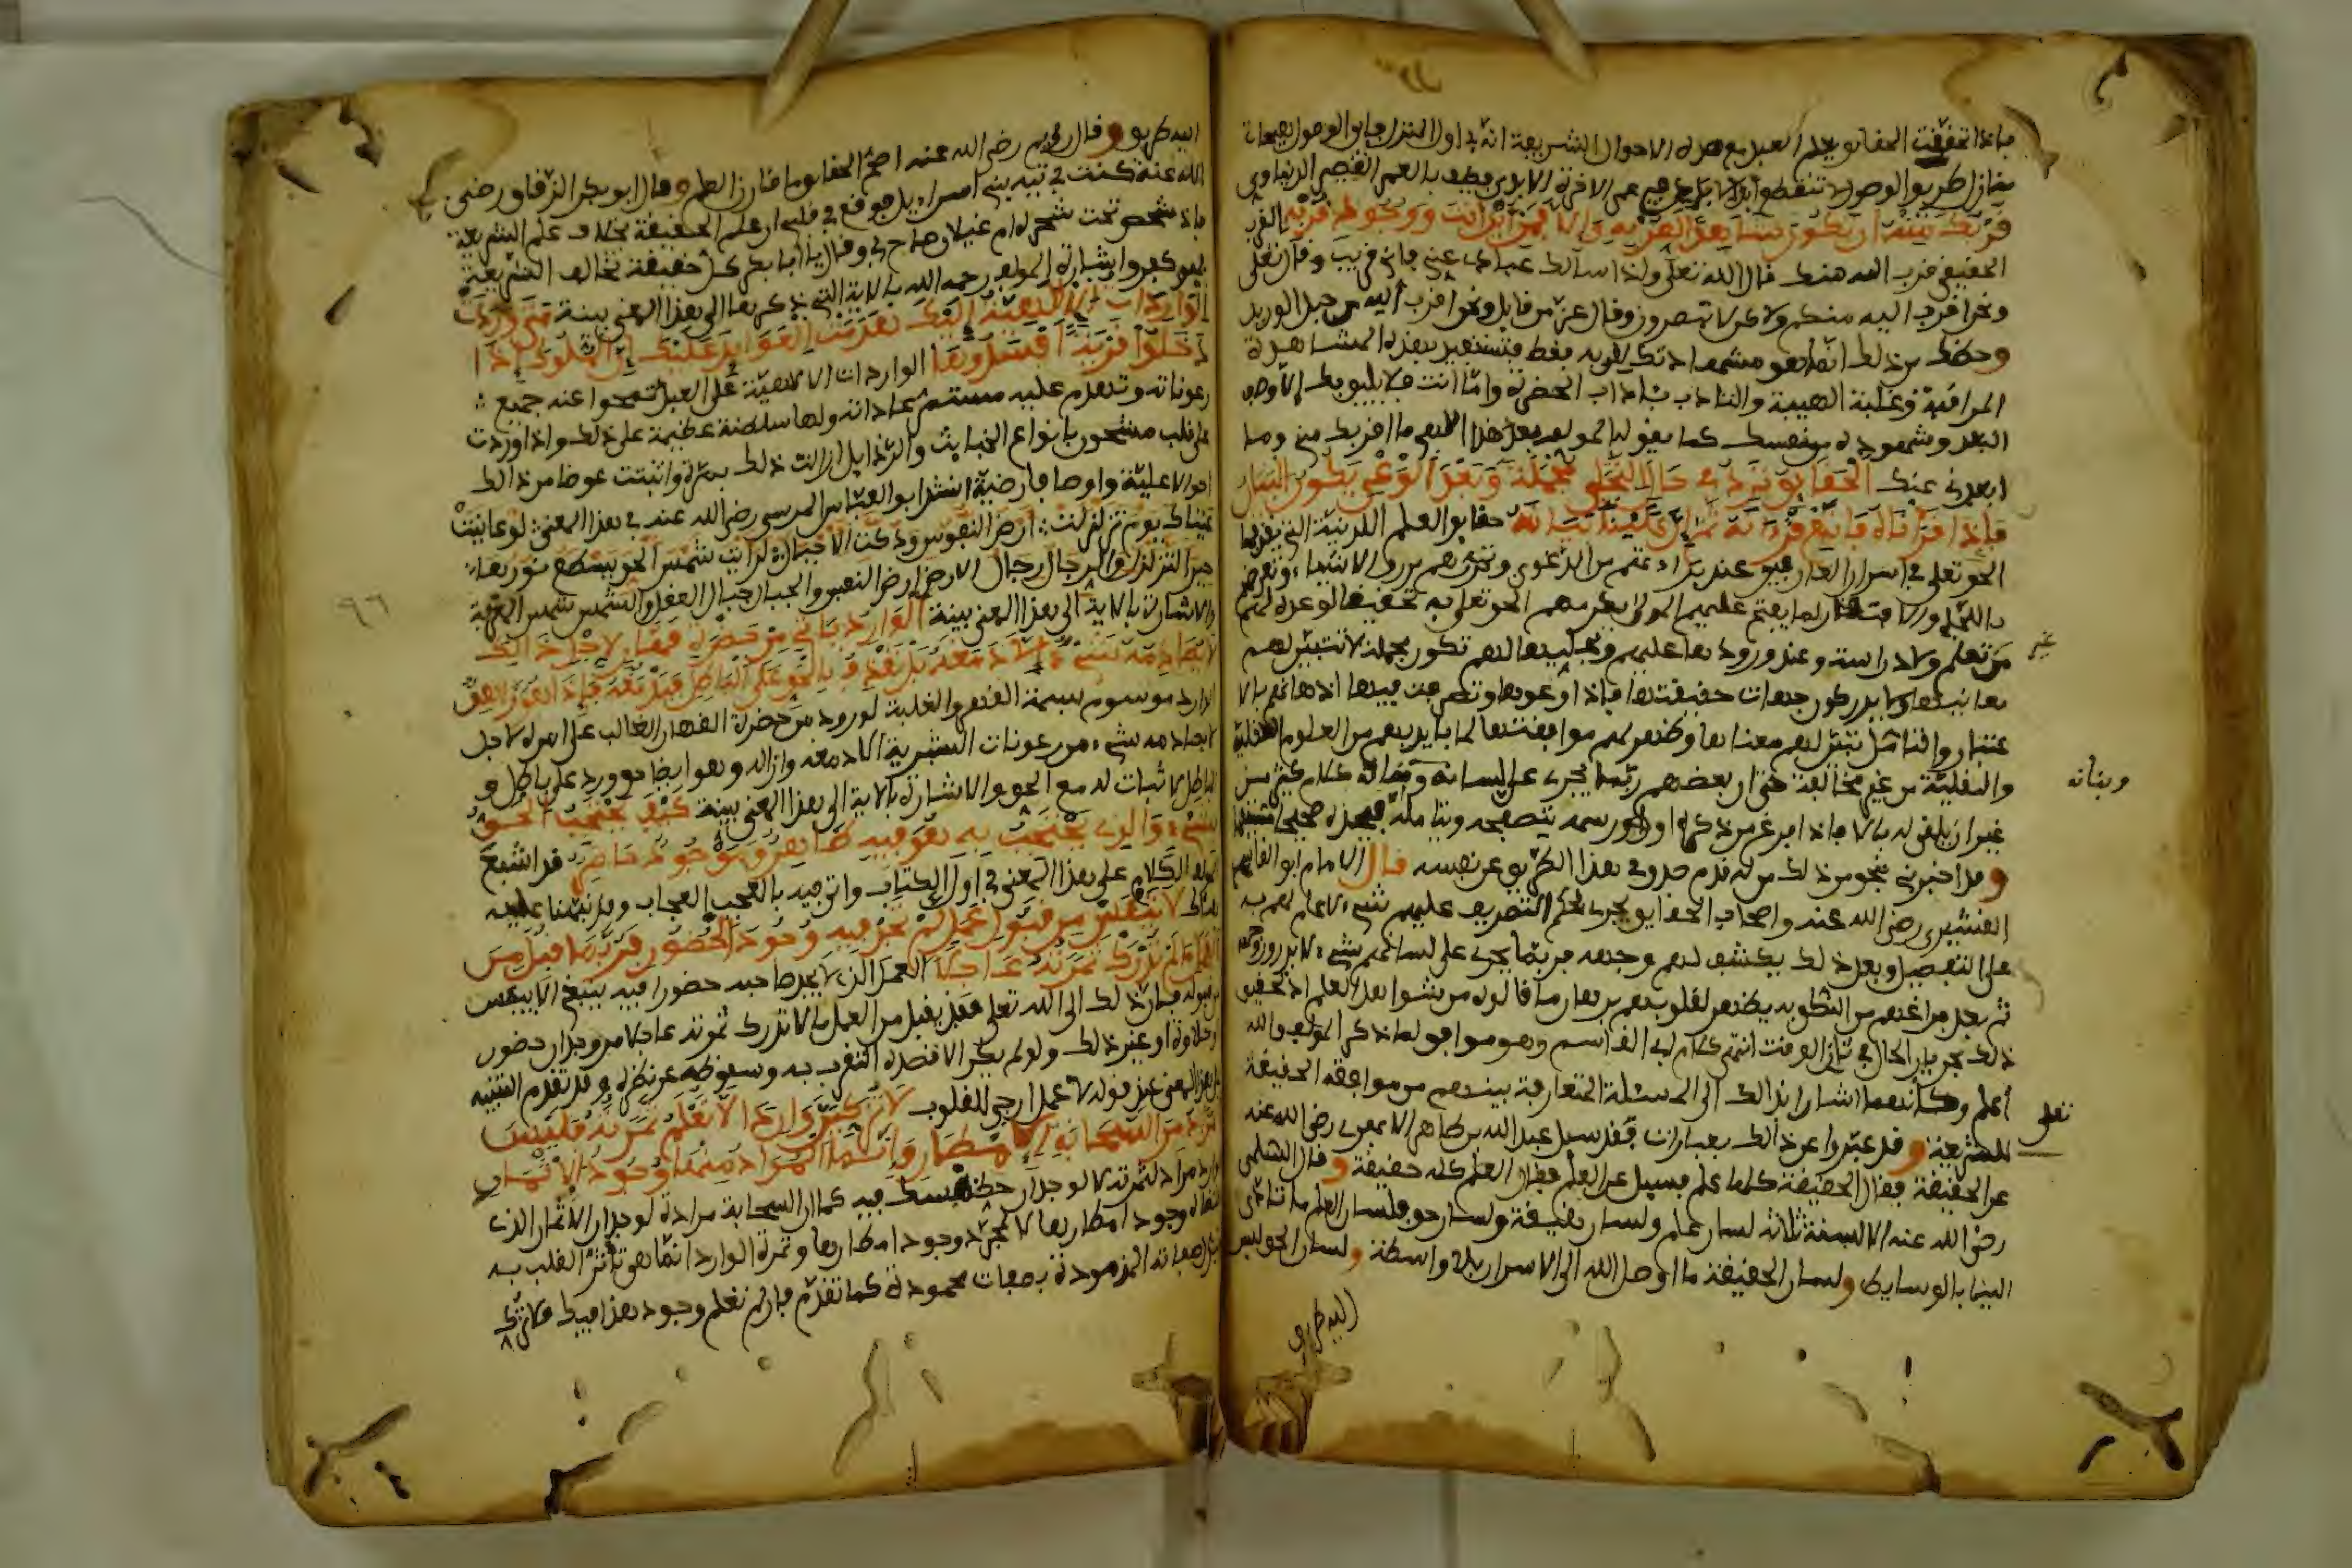 فإذا تحققت الحقائق يعلم العبد مع هذه الاحوال الشريفة انه في اول المنزل فاين الوصول هيهات
منازل طريق الوصول لا تنقطع أبد الابد في عمر الاخرة الابدي فكيف بالعمر القصير الدنياوي
قربك منه ان تكون مشاهدا لقربه والا فمن اين انت ووجود قربه القرب
الحقيقي قرب الله منك قال الله تعلى واذا سألك عبادي عني فاني قريب وقال تعلى
ونحن اقرب اليه منكم ولاكن لا تبصرون وقال عز من قايل ونحن اقرب اليه من حبل الوريد
وحظك من ذلك انما هو مشاهدتك لقربه فقط فتستفيد بهذه المشاهدة
المراقبة وغلبة الهيبة والتادب بئاداب الحضرة واما انت فلا يليق بك الا وصف
البعد وشهوده من نفسك كما يقوله المولف بعد هذا الاهي ما اقربك مني وما
ابعدني عنك الحقائق ترد في حال التجلي مجملة وبعد الوعي يكون البيان
فإذا قرأناه فاتبع قرءانه ثم إن علينا بيانه حقائق العلوم اللدنية التي يقذفها
الحق تعلى في اسرار العارفين عند براءتهم من الدعوى وتحررهم من رق الاشياء وتعرضهم
باللجإ والافتقار لما يفتح عليهم المولى يكرمهم الحق تعلى به تحقيقا لوعده لهم
من تعلم ولا دراسة وعند ورودها عليهم وتجليها لهم تكون مجملة لا تتبين لهم
غير
معانيها ولا يدركون جهات حقيقتها فإذا وعوها وتصرفت فيها اذهانهم بالا
عتبار والتامل تبين لهم معناها وظهر لهم موافقتها لما بايديهم من العلوم العقلية
والنقلية من غير مخالفة حتى ان بعضهم ربما يجري على لسانه وبنانه كلام كثير من
وبنانه
غير ان يلقي له بالا فاذا فرغ من ذكره او رسمه يتصفحه ويتامله فيجده صحيحا مستقيما
وقد اخبرني بنحو من ذلك من له قدم صدق في هذا الطريق عن نفسه قال الامام ابو القاسم
القشيري رضي الله عنه واصحاب الحقايق يجري بحكم التصريف عليهم شيء لا علم لهم به
على التفصيل وبعد ذلك يكشف لهم وجهه فربما يجري على لسانهم شيء لا يدرون وجهه
ثم بعد فراغهم من النطق به يظهر لقلوبهم برهان ما قالوه من شواهد العلم اذ تحقيق
ذلك بجريان الحال في ثاني الوقت انتهى كلام ابي القاسم وهو موافق لما ذكره المولف والله
أعلم وكأنهما اشارا بذالك الى المسئلة المتعارفة بينهم من موافقة الحقيقة
تعلى
للشريعة وقد عبروا عن ذالك بعبارات فقد سيل عبد الله بن طاهر الابهري رضي الله عنه
عن الحقيقة فقال الحقيقة كلها علم فسيل عن العلم فقال العلم كله حقيقة وقال الشبلي
رضي الله عنه الالسنة ثلاثة لسان علم ولسان حقيقة ولسان حق فلسان العلم ما تادى
الينا بالوسايط ولسان الحقيقة ما اوصل الله الى الاسرار بلا واسطة ولسان الحق ليس
اليه طريق
اليه طريق وقال رويم رضي الله عنه اصح الحقايق ما قارن العلم وقال ابو بكر الزقاق رضي
الله عنه كنت في تيه بني اسراءيل فوقع في قلبي ان علم الحقيقة بخلاف علم الشريعة
فاذا شخص تحت شجرة ام غيلان صاح بي وقال يا أبا بكر كل حقيقة تخالف الشريعة
فهو كفر واشارة المولف رحمه الله بالاية التي ذكرها الى هذا المعنى بينة متى وردت
الواردات الالهية إليك هدمت العوايد عليك إن الملوك إذا
دخلوا قرية أفسدوها الواردات الالهية على العبد تمحوا عنه جميع
رعوناته وتهدم عليه مستمر عاداته ولها سلطنة عظيمة على ذلك واذا وردت
على قلب مشحون بانواع الخبائث والرذايل ازالت ذلك بمرة واثبتت عوضا من ذالك
احوالا علية واوصافا رضية انشد ابو العباس المرسي رضي الله عنه في هذا المعنى لو عاينت
عيناك يوم تزلزلت ارض النفوس ودكت الاجبال لرأيت شمس الحق يسطع نورها
حين التزلزل والرجال رجال الارض ارض النفوس والجبال جبال العقل والشمس شمس المعرفة
والاشارة بالاية الى هذا المعنى بينة الوارد ياتي من حضرة قهار لاجل ذالك
لا يصادمه شيء الا دمغه بل نقذف بالحق على الباطل فيدمغه فإذا هو زاهق
الوارد موسوم بسمة القهر والغلبة لوروده من حضرة القهار الغالب على امره لاجل
لا يصادمه شيء من رعونات البشرية الا دمغه وازاله وهو ايضا حق ورد على باطل و
الباطل لا ثبات له مع الحق والاشارة بالاية الى هذا المعنى بينة كيف يحتجب الحق
بشيء والذي يحتجب به هو فيه ظاهر وموجود حاضر قد اشبع
المولف الكلام على هذا المعنى في اول الكتاب واتى فيه بالعجب العجاب وقد نبهنا عليه
هنالك لا تيأس من قبول عمل لم تجد فيه وجود الحضور فربما قبل من
العمل ما لم تدرك ثمرته عاجلا العمل الذي لا يجد صاحبه حضورا فيه ينبغي الا ييئس
من قبوله فان ذلك الى الله تعلى فقد يقبل من العمل ما لا تدرك ثمرته عاجلا من وجدان حضور
وحلاوة او غير ذلك ولو لم يكن الا قصده التقرب به وسقوطه عن نظره وقد تقدم التنبيه
على هذا المعنى عند قوله لا عمل ارجى للقلوب لا تزكين واردا لا تعلم ثمرته فليس
المراد من السحابة الامطار وإنما المراد منها وجود الاثمار
الوارد مراد لثمرته لا لوجدان حظ نفسك فيه كما ان السحابة مرادة لوجدان الاثمار الذي
وجود امطارها لا لمجرد وجود امطارها وثمرة الوارد انما هو تأثر القلب به
صفاته المذمومة بصفات محمودة كما تقدم فان لم تعلم وجود هذا فيك فلا تزك
٩٦